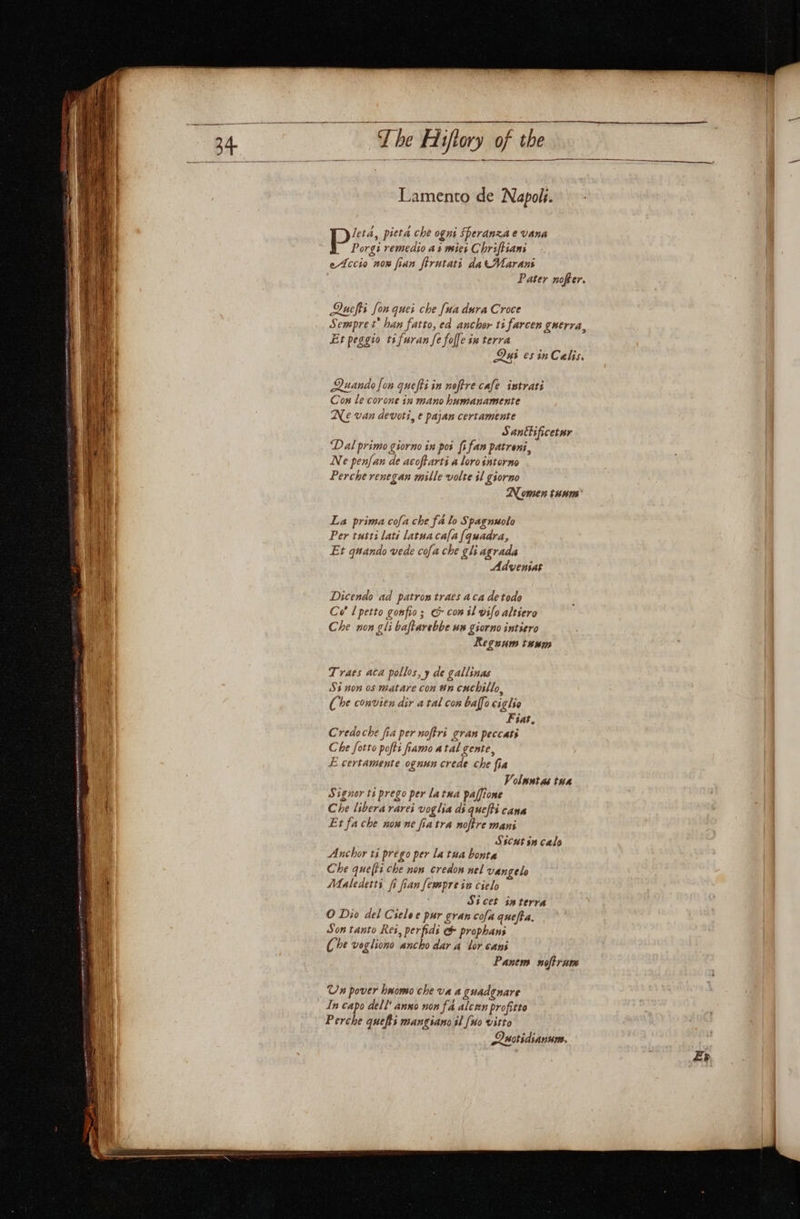 34 The Hiſtory of the
Lamento de Napoli.
PIetá, pietá che ogni ſperanza e vana
Porgi remedio a i miei Chriſtiani
Accio non ſian ſtrutati da Marani
Pater noſter.
Queſti ſon quei che ſua dura Croce
Sempre t' han fatto, ed anchor ti farcen guerra,
Et peggio ti furan ſe foſſe in terra
Qui es in Cœlis.
Quando ſon queſti in noſtre caſe intrati
Con le corone in mano humanamente
Ne van devoti, e pajan certamente
Sanctificetur
Dal primo giorno in poi ſi fan patroni,
Ne penſan de acoſtarti a loro intorno
Perche renegan mille volte il giorno
Nomen tuum
La prima coſa che fá lo Spagnuolo
Per tutti lati la tua caſa ſquadra,
Et quando vede coſa che gli agrada
Adveniat
Dicendo ad patron traes a ca de todo
Co' l petto gonfio ; & con il viſo altiero
Che non gli baſtarebbe un giorno intiero
Regnum tuum
Traes aca pollos, y de gallinas
Si non os matare con un cuchillo,
Che convien dir a tal con baſſo ciglio
Fiat,
Credo che ſia per noſtri gran peccati
Che ſotto poſti ſiamo a tal gente,
E certamente ognun crede che ſia
Voluntas tua
Signor ti prego per la tua paſſione
Che libera rarei voglia di queſti cana
Et fa che non ne ſia tra noſtre mani
Sicut in cœlo
Anchor ti prego per la tua bonta
Che queſti che non credon nel vangelo
Maledetti ſi ſian ſempre in cielo
Si cet in terra
O Dio del Cielo e pur gran coſa queſta.
Son tanto Rei, perfidi & prophani
Che vogliono ancho dar a lor cani
Panem noſtrum
Un pover huomo che va a guadgnare
In capo dell' anno non fá alcun profitto
Perche queſti mangiano il ſuo vitto
Quotidianum.
Et